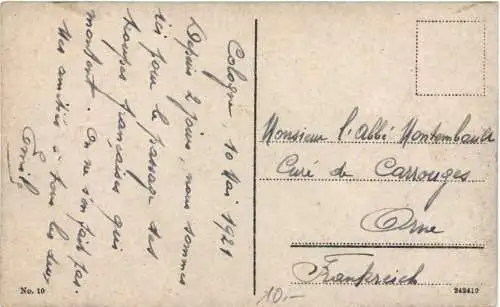 Cologne, 10 Mai 1921
Depuis 2 jours, nous sommes
ici pour le passage des
troupes françaises qui
montent. On ne s'en fait pas.
Mes amitiés à tous les deux
Emile
Monsieur l'Abbé Montembault
Curé de Carrouges
Orne
Frankreich
No. 10
10.-
242419